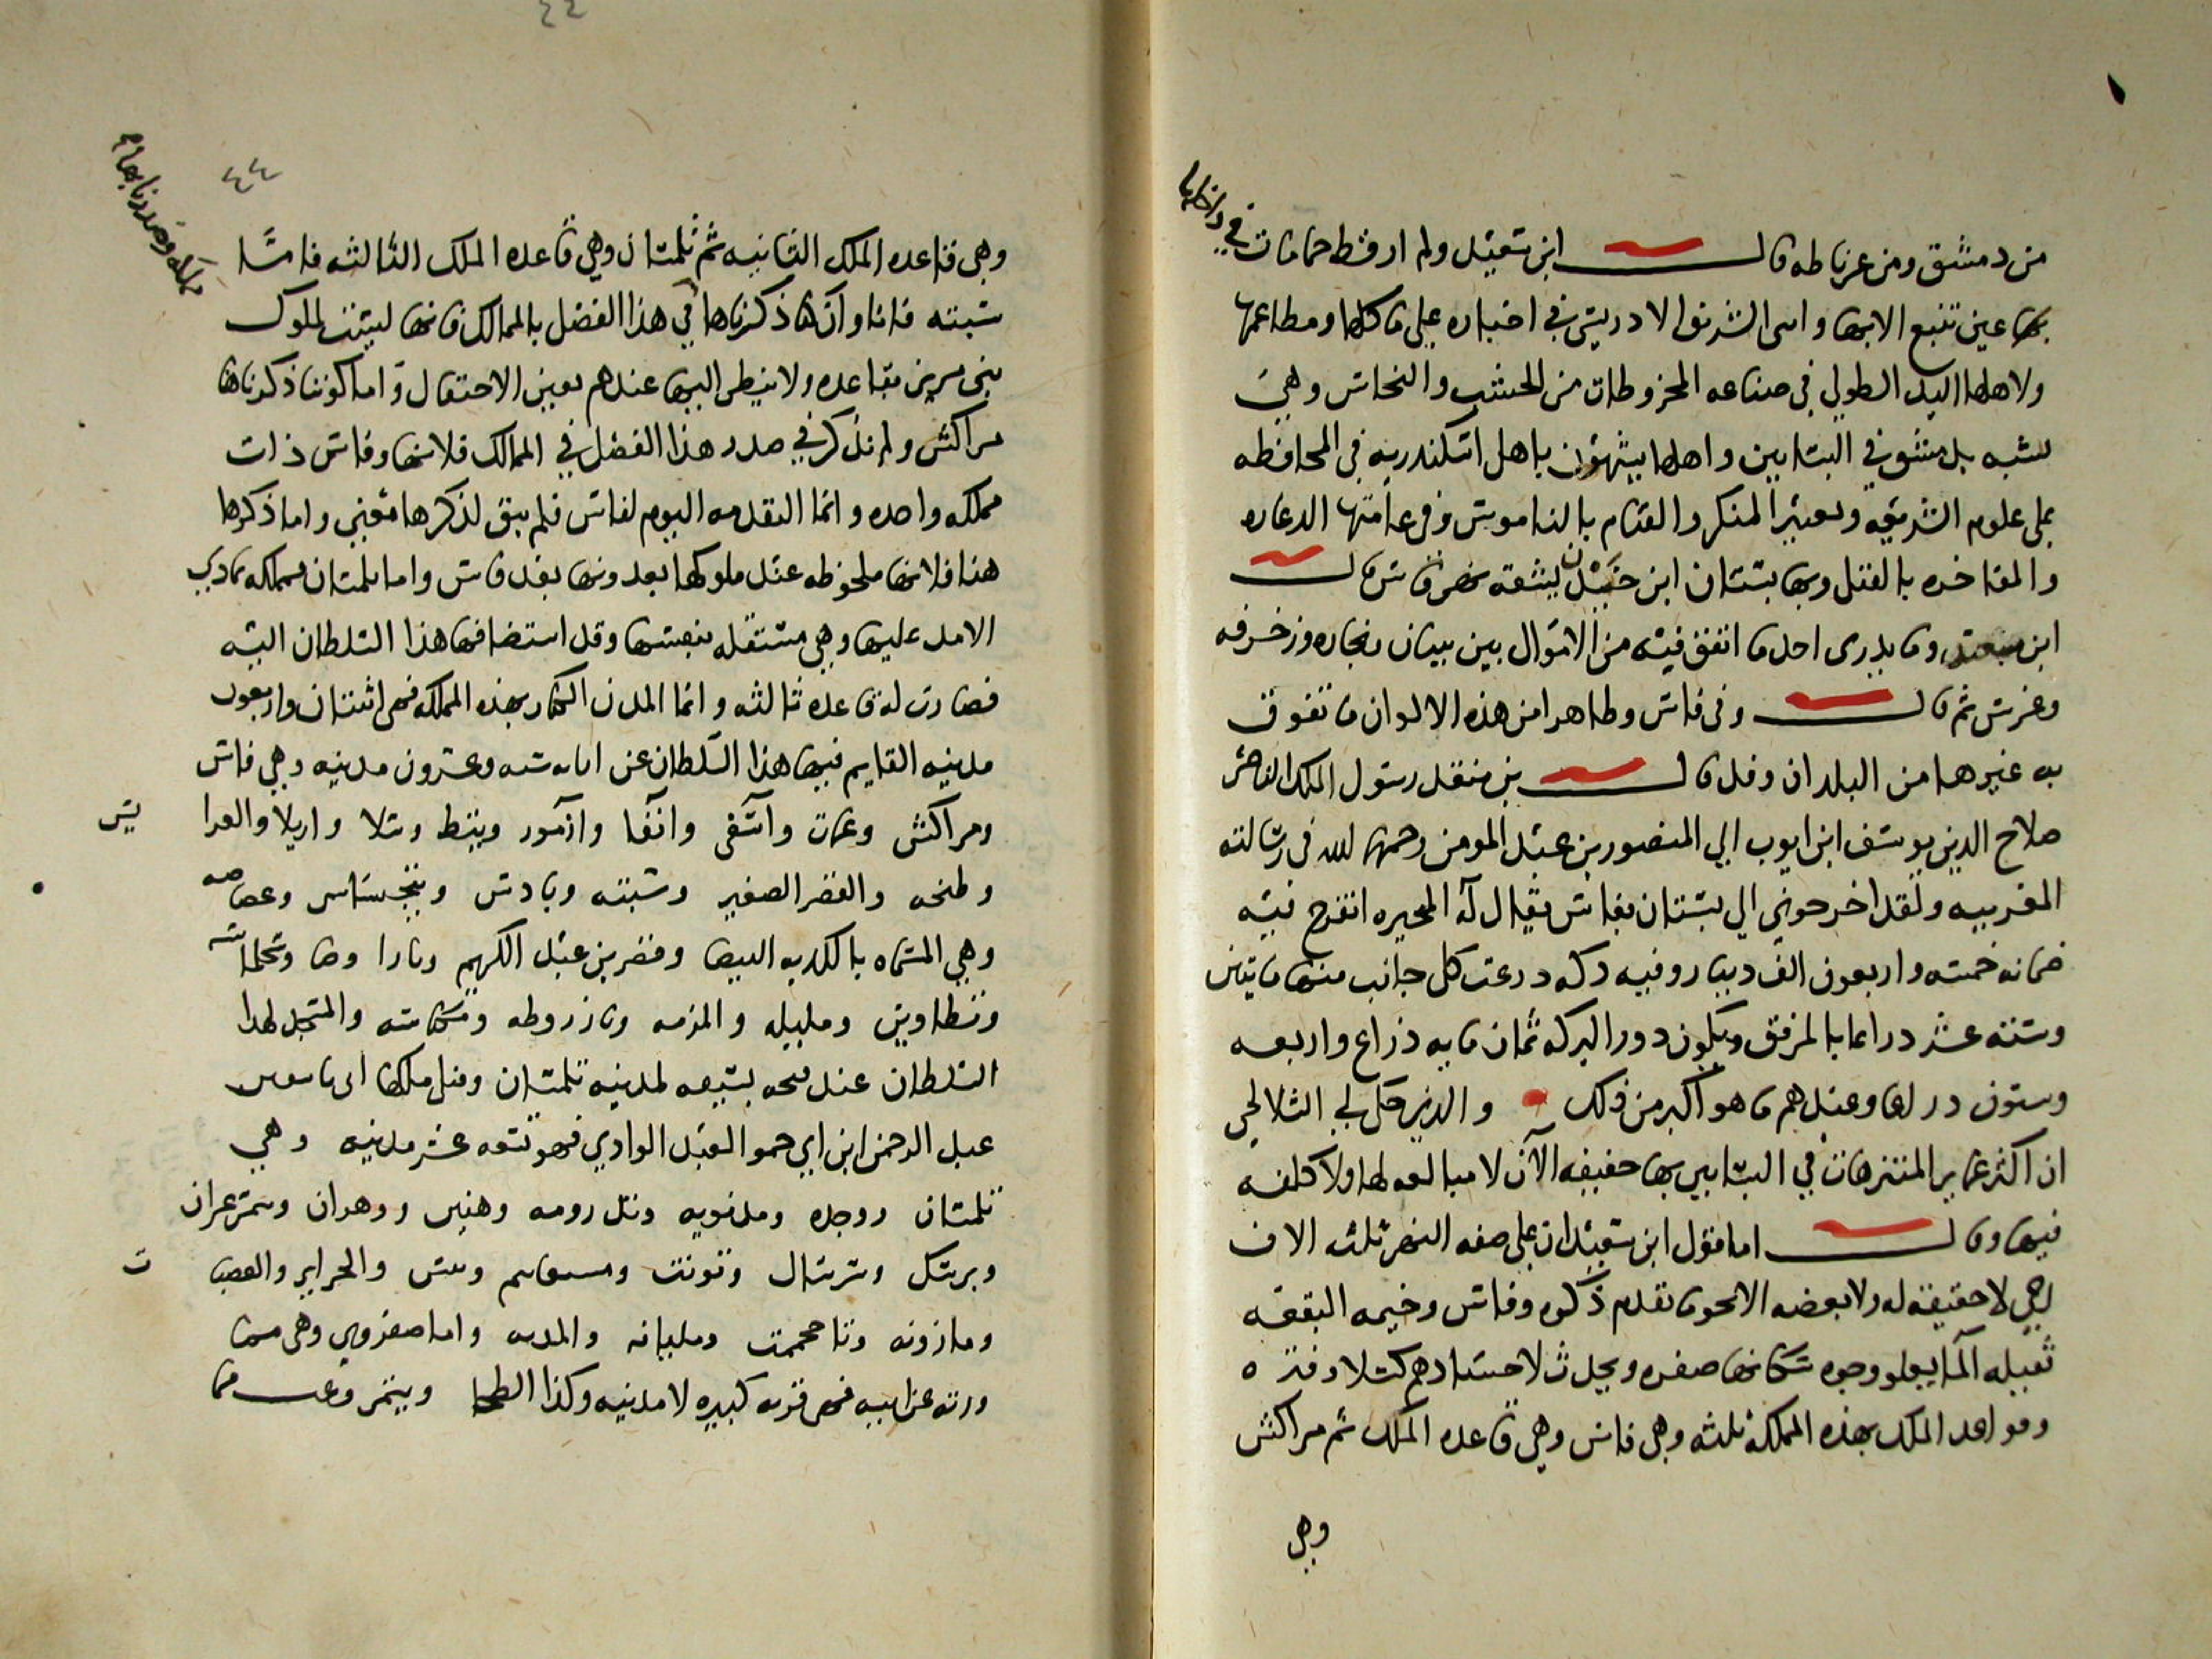 من دمشق ومن غرناطه قال ابن سعيد ولم ار قط حمامات في داخلها
بها عين تنبع الا بها واسى الشريف الادريسي في اخباره على ماكلها ومطاعمها
ولاهلها اليد الطولي في صناعه المخروطات من الخشب والنحاس وهي
تشبه بدمشق في البساتين واهلها يشبهون باهل اسكندريه في المحافظه
على علوم الشريعه وتغيير المنكر والقيام بالناموس وفي عامتها الدعاره
والمفاخره بالقتل وبها بستان ابن يشقه نهر فاس قال
ابن سعيد وما يدرى احد ما انفق فيه من الاموال بين بنيان ونجاره وزخرفه
وغرس ثم قال وفي فاس وظاهرها من هذه الالوان ما تفوق
به غيرها من البلدان وقد قال بن منقد رسول الملك الناصر
صلاح الدين يوسف ابن ايوب الي المنصور بن عبد المومن رحمهم الله في رسالته
المغربيه ولقد اخرجوني الي بستان بفاس يقال له البحيره اتفرج فيه
ضمانه خمسه واربعون الف دينار وفيه بركه درعت كل جانب منها مايتين
وسته عشر دراعا بالمرفق ويكون دور البركه ثمان مايه ذراع واربعه
وستون دراعا وعندهم ما هو اكبر من ذلك والذين حكى لي السلالحي
ان اكثر عماير المتنزهات في البساتين بها خفيفه الآن لا مبالغه لها ولا كلفه
فيها وقال اما قول ابن سعيد ان على ضفه النهر ثلثه الاف
رحي لا حقيقه له ولا بعضه الا نحو ما تقدم ذكره وفاس وخيمه البقعه
ثقيله الما يعلو وجوه سكانها صفره ويحدث لاجسادهم كسلا وفتره
وقواعد الملك بهذه المملكه ثلثه وهي فاس وهي قاعده الملك ثم مراكش
وهي
٤٤
وهي قاعده الملك الثانيه ثم تلمسان وهي قاعده الملك الثالثه فاما
سبته فانا وان كنا ذكرناها في هذا الفصل بالممالك فانها ليست لملوك
بني مرين بقاعده ولا ينظر اليها عندهم بعين الاحتفال واما كوننا ذكرنا
مراكش ولم نذكر في صدر هذا الفصل في الممالك فلانها وفاس ذات
مملكه واحده وانما التقدمه اليوم لفاس فلم يبق لذكرها معني واما ذكرها
هنا فلانها ملحوظه عند ملوكها يعدونها بعد فاس واما تلمسان فمملكه تمادي
الامد عليها وهي مستقله بنفسها وقد استضافها هذا السلطان اليه
فصارت له قاعده ثالثه وانما المدن الكبار بهذه المملكه فهي اثنتان واربعون
مدينه القايم فيها هذا السلطان عن ابايه سته وعشرون مدينه وهي فاس
ومراكش وغمات وآسفي وانفا وازمور وسلا واريلا والعرا يس
وطنجه والقصر الصغير وسبته وبادس وعصاصه
وهي المسماه بالكديه البيضا وقصر بن عبد الكريم وتازا وسجلماسه
وتطاوين ومليله والمزمه وتازروطه ومكناسه والمتجدد لهذا
السلطان عند فتحه بسيفه لمدينه تلمسان وقتل ملكها ابي تاسفين
عبد الرحمن ابن ابي حمو العبد الوادي فهو تسعه عشر مدينه وهي
تلمسان ووجده ومدنويه وتد رومه وهنين ووهران وتيمزغران
وبرشك وشرشال وتونت ومستغانم وتنس والجزاير والقصبا ت
ومازونه وتاحجمت ومليانه والمديه واما صفروي وهي من
وارته عزابيه فهي قريه كبيره لا مدينه وكذا الطحا